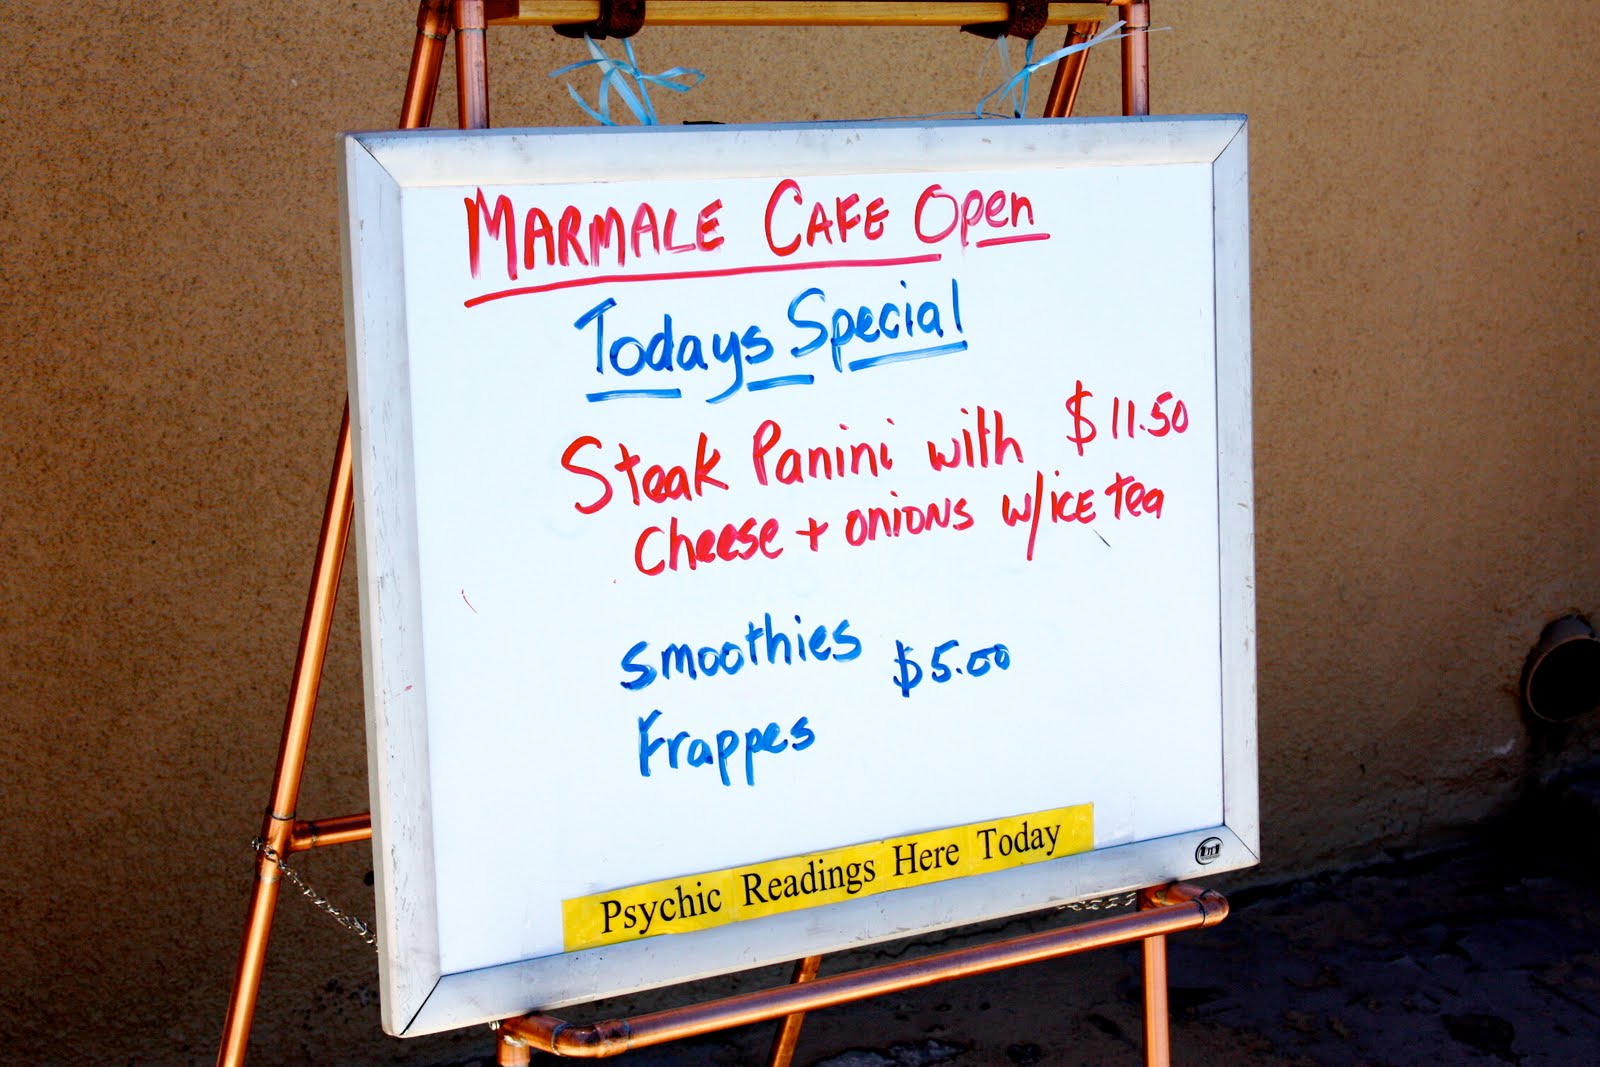 MARMALE CAFE Open
Todays Special
Steak Panini with $11.50
cheese + onions w/ICE tea
smoothies $5.00
Frappes
Psychic Readings Here Today